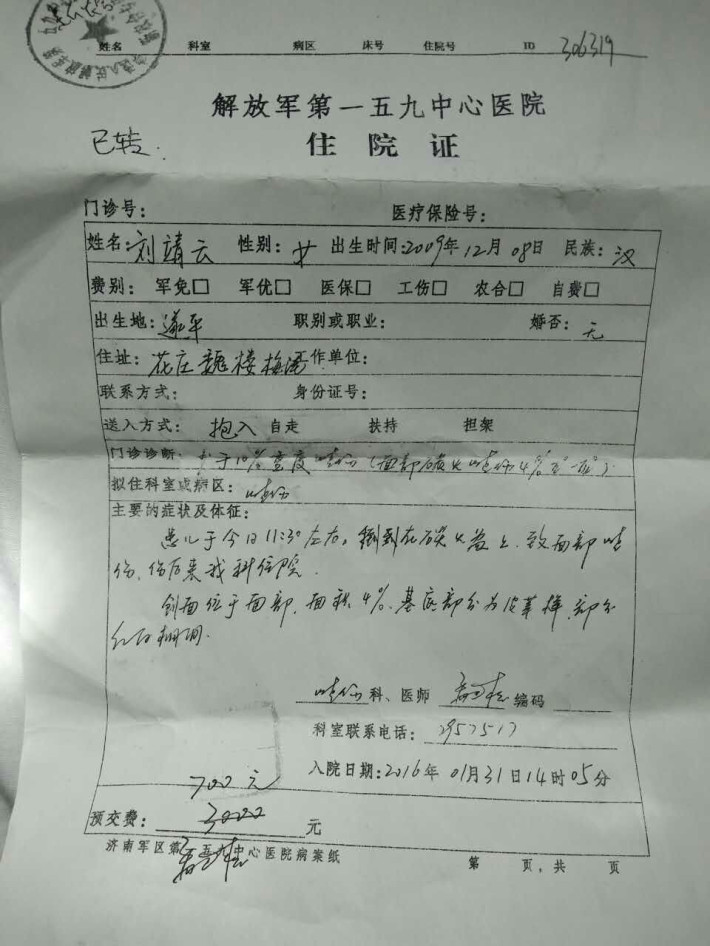 姓名 科室 病区 床号 住院号 ID 306319
解放军第一五九中心医院
已转.
住院证
门诊号: 医疗保险号:
姓名:刘靖云 性别:女 出生时间:2009年12月08日 民族:汉
费别: 军免□ 军优□ 医保□ 工伤□ 农合□ 自费□
出生地:遂平 职别或职业: 婚否:无
住址:花庄魏楼 作单位:
联系方式: 身份证号:
送入方式: 抱入 自走 扶持 担架
门诊诊断: 小于10% 烧伤(面部碳火烧伤4%
拟住科室或病区: 烧伤
主要的症状及体征:
患儿于今日11:30左右,倒到在碳火盆上,致面部烧
伤,伤后来我科住院.
创面位于面部,面积4%,基底部分为皮革样,部分
红白相间.
烧伤科、医师 编码
科室联系电话: 2957517
入院日期:2016年01月31日14时05分
700元
预交费: 3000 元
济南军区第一五九中心医院病案纸
第 页,共 页